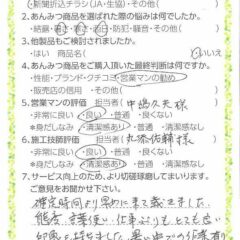 ・新聞折込チラシ(JA・生協)・その他(
2.あんみつ商品を選ばれた際の悩みは何でしたか。
・結露・暑さ・寒さ・防犯・騒音・その他(
3.他製品もご検討されましたか。
・はい 商品名( )・いいえ
4.あんみつ商品をご購入頂いた最終判断は何ですか。
・性能・ブランド・クチコミ・営業マンの勧め
・販売店の信用 ・その他(
5.営業マンの評価 担当者( 様)
・非常に良い ・良い ・普通 ・良くない
*身だしなみ ・清潔感あり ・普通 ・清潔感なし
6.施工技師評価 担当者( 様)
・非常に良い ・良い ・普通 ・良くない
*身だしなみ ・清潔感あり ・普通 ・清潔感なし
7.サービス向上のため、より切磋琢磨してまいります。
ご意見をお聞かせ下さい。
定時間より早めに来て戴きました。
態度 言葉使い 仕事ぶりもとても良い